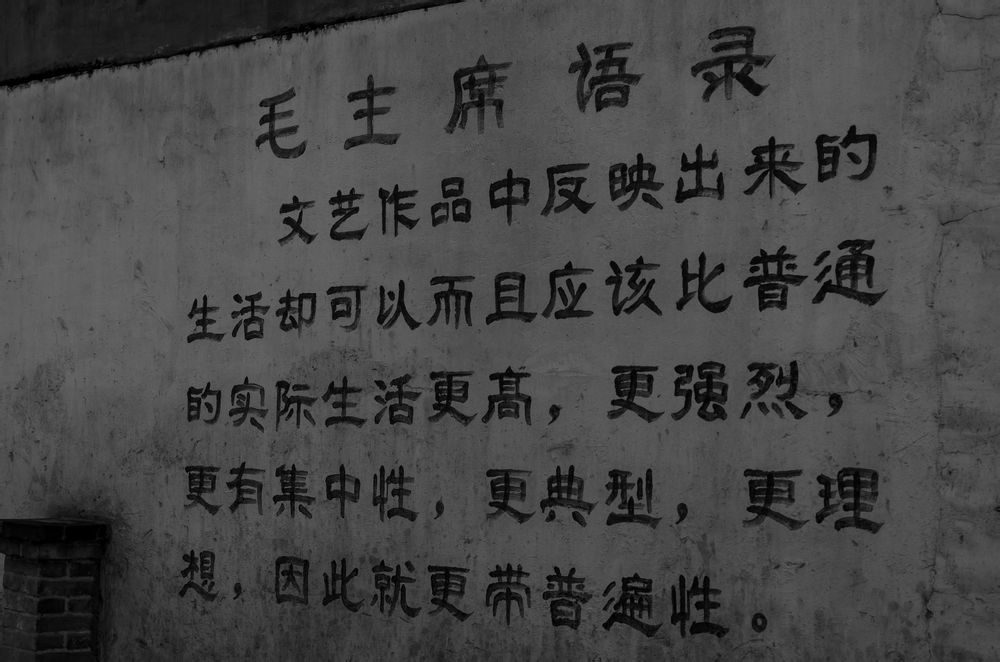 毛主席语录
文艺作品中反映出来的
生活却可以而且应该比普通
的实际生活更高，更强烈，
更有集中性，更典型，更理
想，因此就更带普遍性。